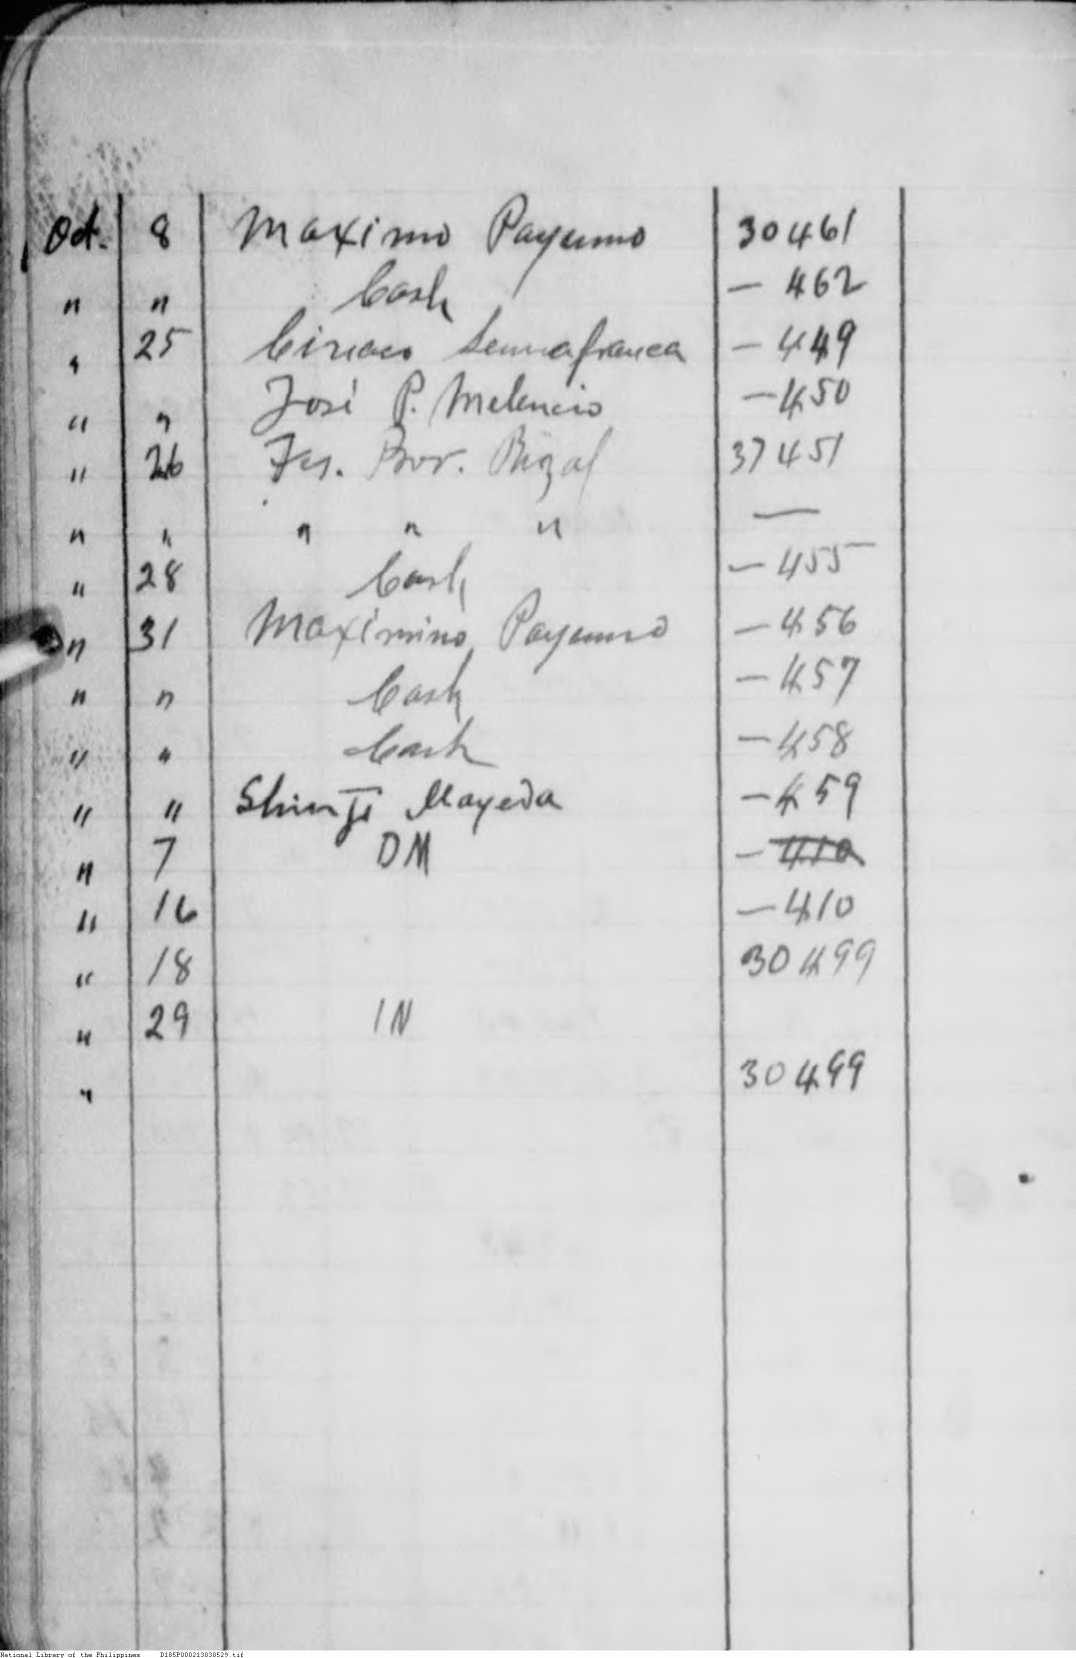 Oct. 8 Maximo Payumo 30461
" " Cash — 462
" 25 Ciriaco — 449
" " José P. Melencio — 450
" 26 Tes. Prov. Rizal 37451
" " " " " —
" 28 Cash — 455
" 31 Maximino Payumo — 456
" " Cash — 457
" " Cash — 458
" " Shinji Mayeda — 459
" 7 DM — 410
" 16 — 410
" 18 30499
" 29 IN
" 30499
National Library of the Philippines D185P000213038529.tif